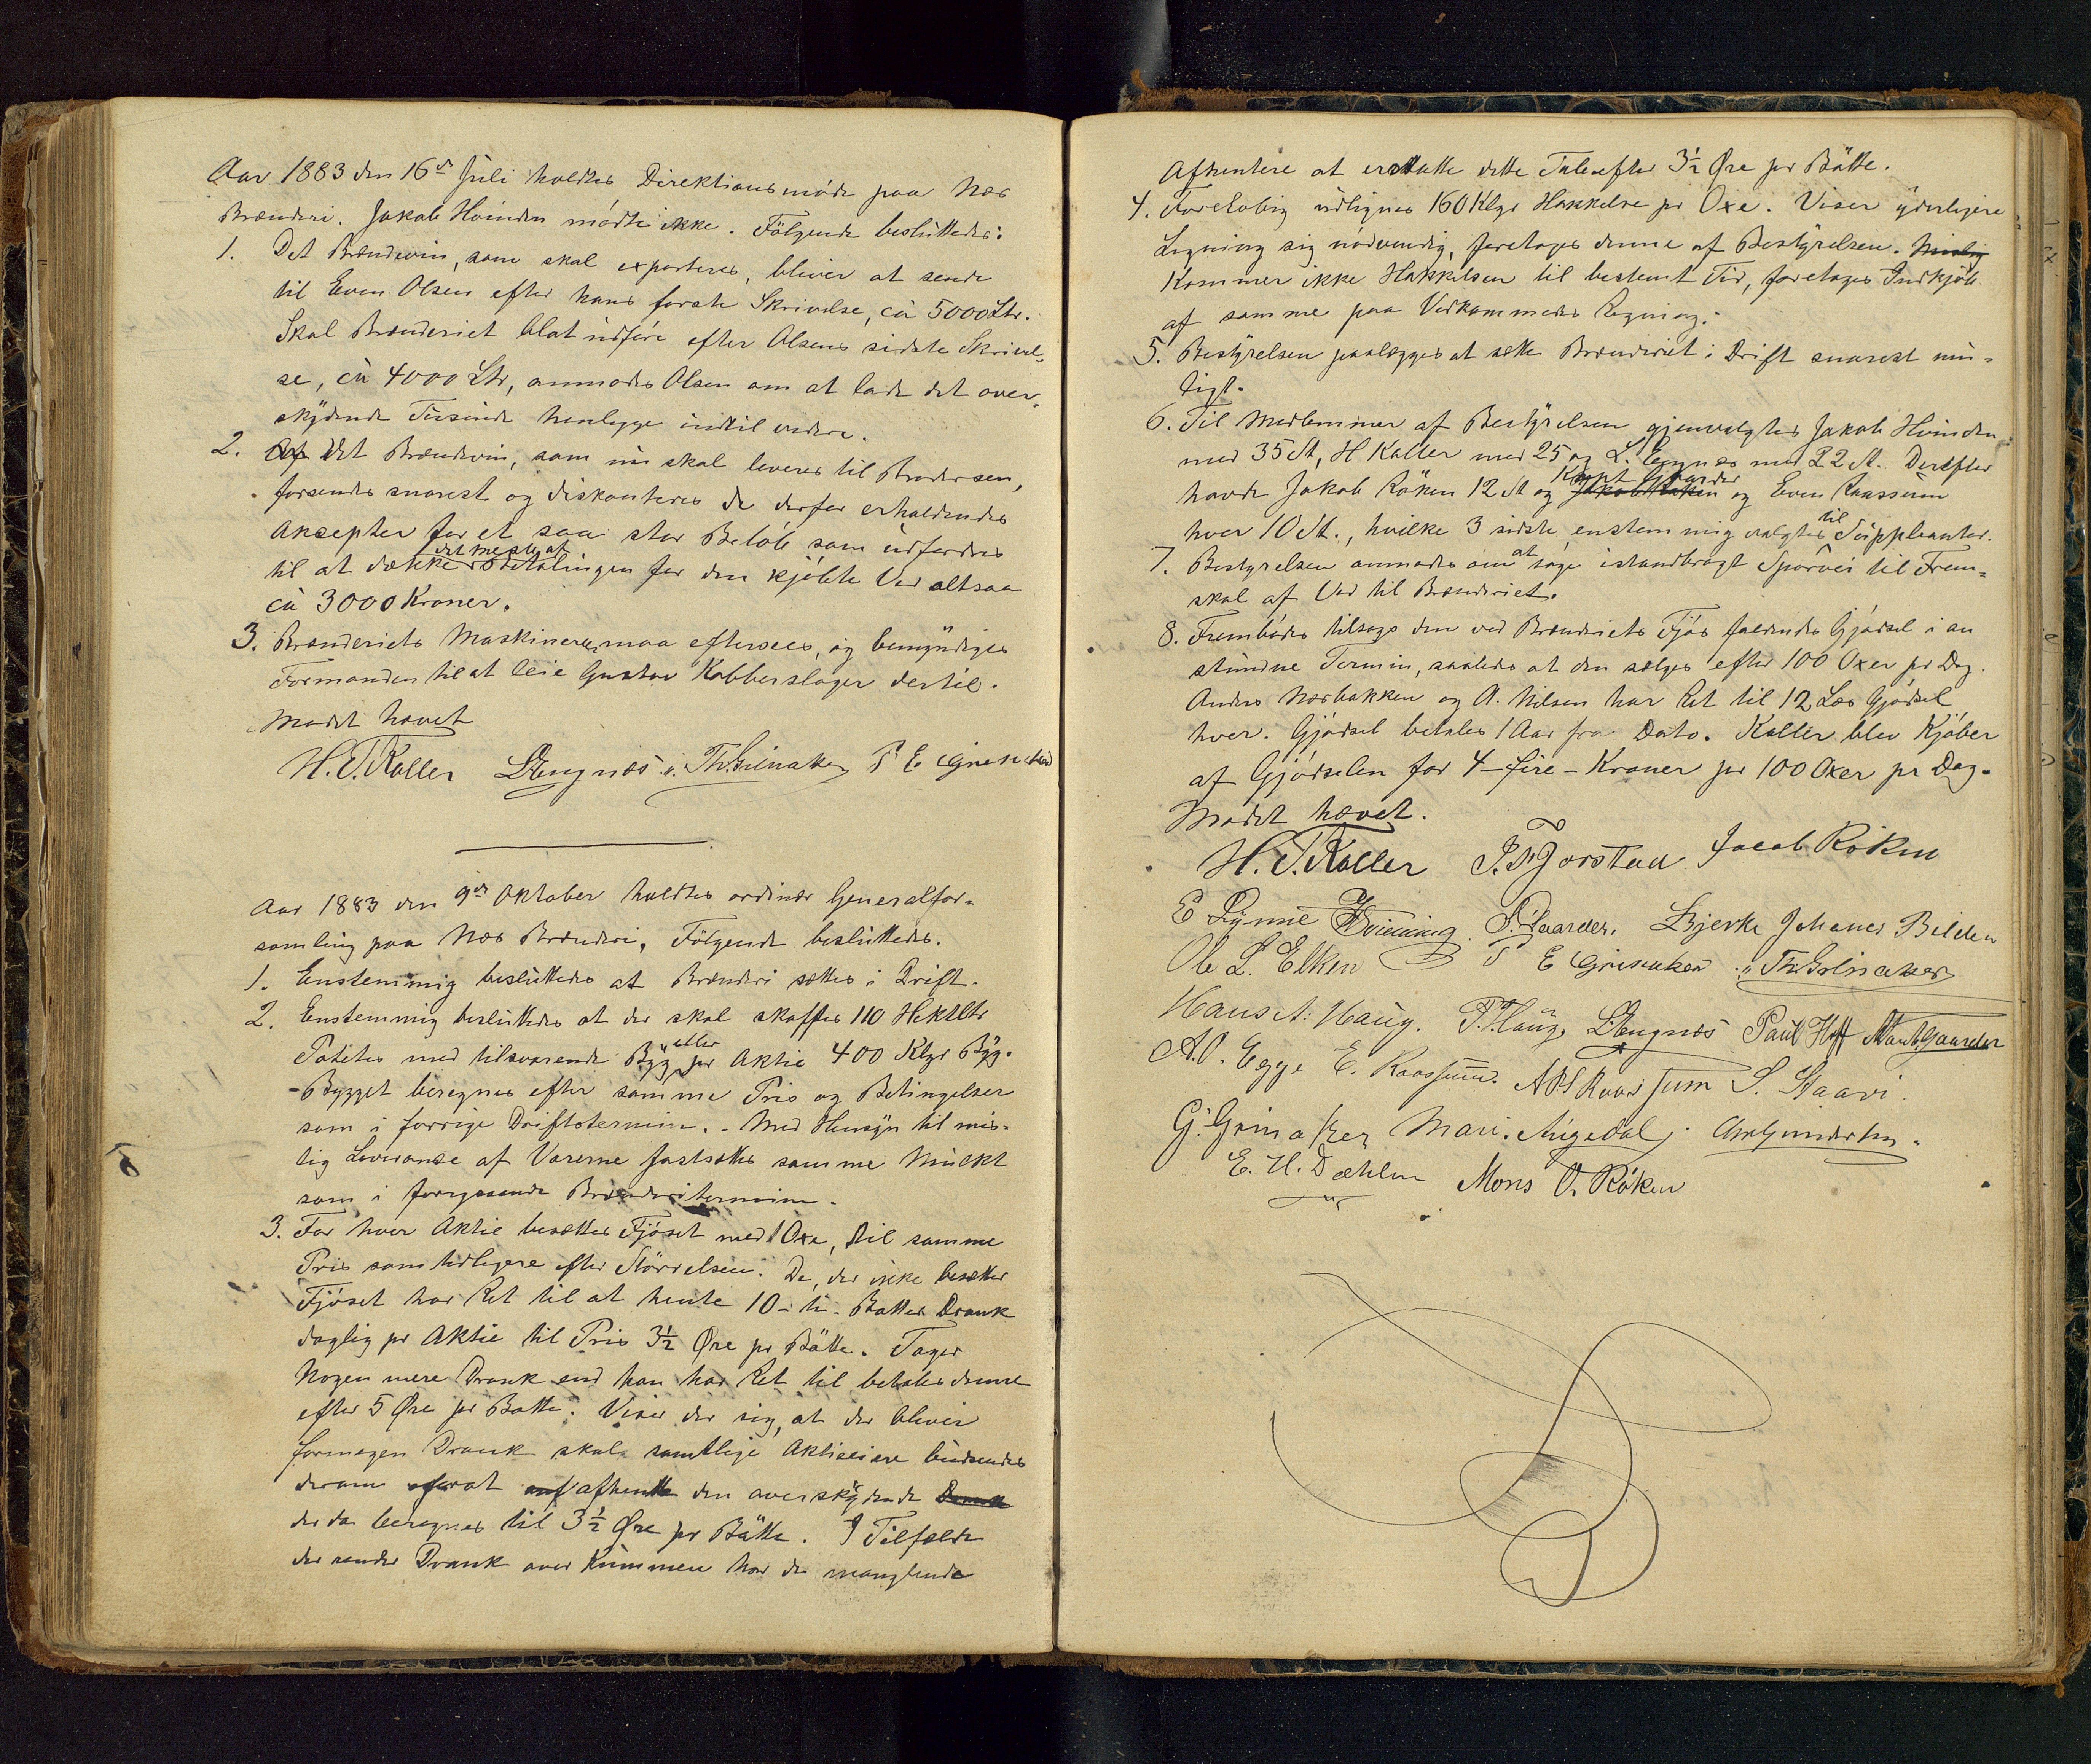 Aar 1883 den 16de Juli holdtes Direktionsmöde paa Næs
Brænderi. Jakob Hoinden mödte ikke. Fölgende besluttedes:
1. Det Brændevin, som skal exporteres, bliver at sende
til Even Olsen efter hans første Skrivelse, ca 5000 Ltr.
Skal Brænderiet blot udföre efter Olsens sidste Skrivel-
se, ca 4000 Ltr, anmodes Olsen om at lade det over-
skydende Tusinde henligge indtil videre.
2. Af Det Brændevin, som nu skal leveres til Brodersen,
forsendes snarest og diskonteres de derfor erholdendes
Aksepter for et saa stor Belöb som udfordres
til at dække det meste af Betalingen for den kjöbte Ved altsaa
ca 3000 Kroner.
3. Brænderiets Maskineri maa eftersees, og bemyndiges
Formanden til at leie Gustav Kobberslager dertil.
Mödet hævet
H.T. Koller L. Engnæs. Th. Grinaker P E Grinaker
Aar 1883 den 9de Oktober holdtes ordinær Generalfor-
samling paa Næs Brænderi. Fölgende besluttedes.
1. Enstemmig besluttedes at Brænderi sættes i Drift.
2. Enstemmig besluttedes at der skal skaffes 110 Hektltr
Potetes med tilsvarende Byg eller pr Aktie 400 Klgr Byg.
- Bygget beregnes efter samme Pris og Betingelser
som i forrige Driftstermin. - Med Hensyn til mis-
lig Leveranse af Varerne fastsættes samme Mulkt
som i foregaaende Brænderitermin.
3. For hver Aktie besættes Fjöset med 1 Oxe, til samme
Pris som tidligere efter Störrelsen. De, der ikke besætter
Fjöset har Ret til at hente 10 - ti - Bötter Drank
daglig pr Aktie til Pris 3½ Øre pr Bötte. Tager
Nogen mere Drank end han har Ret til betales denne
efter 5 Øre pr Bötte. Viser der sig, at der bliver
formegen Drank skal samtlige Aktieeiere budsendes
derom forat afhente den overskydende Drank
der da beregnes til 3½ Øre pr Bötte. I Tilfælde
der sender Drank over Kummen har de manglende
Afhentere at erstatte dette Tab efter 3½ Øre pr Bötte.
4. Forelöbig udlignes 160 Klgr Hakkelse pr Oxe. Viser yderligere
Ligning sig nödvendig, foretages denne af Bestyrelsen.
Kommer ikke Hakkelsen til bestemt Tid, foretages Indkjöb
af samme paa Vedkommendes Regning.
5. Bestyrelsen paalægges at sætte Brænderiet i Drift snarest mu-
ligt.
6. Til Medlemmer af Bestyrelsen gjenvalgtes Jakob Hoinden
med 35 St, H Koller med 25 og L. Engnæs med 22 St. Derefter
havde Jakob Röken 12 St og Jakob Röken Kapt Gaarder og Even Raassum
hver 10 St., hvilke 3 sidste enstemmig valgtes til Suppleanter.
7. Bestyrelsen anmodes om at söge istandbragt Sporvei til Frem-
skal af Ved til Brænderiet.
8. Frembödes tilsags den ved Brænderiets Fjös faldendes Gjödsel i an
stundne Termin, saaledes at den sælges efter 100 Oxer pr Dag.
Anders Næsbakken og A. Nilsen har Ret til 12 Læs Gjödsel
hver. Gjödsel betales 1 Aar fra Dato. Koller blev Kjöber
af Gjödselen for 4 - fire - Kroner pr 100 Oxer pr Dag.
Mödet hævet.
H. T. Koller P. Fjorstad Jacob Röken
E Rynne Gaarder. L Bjerke Johanes Bilden
Ole L. Elken P E Grinaker Th. Grinaker
Hans A. Haug. P. Haug, L Engnæs Paul Hoff Mart. Gaarder
A.O. Egge E. Raassum. AHRaassum S. Staavi.
G. Grinaker Mari. Augedal. A Gundersen.
E. H. Dæhlen Mons O. Röken